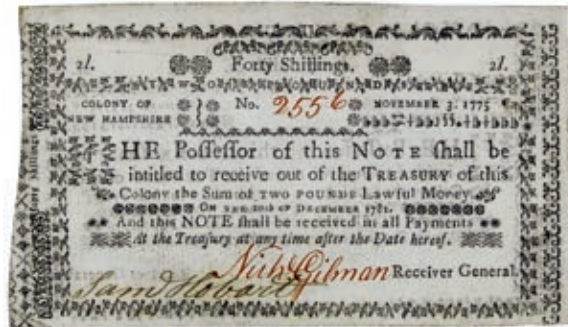 Forty Shillings.
2l. 2l.
TWO POUNDS
COLONY OF
NEW HAMPSHIRE
No. 2556
NOVEMBER 3. 1775
THE Possessor of this NOTE shall be
intitled to receive out of the TREASURY of this
Colony the Sum of TWO POUNDS Lawful Money
ON 20th OF DECEMBER 1781.
And this NOTE shall be received in all Payments
At the Treasury at any time after the Date hereof.
Nich Gilman Receiver General.
Sam Hobart